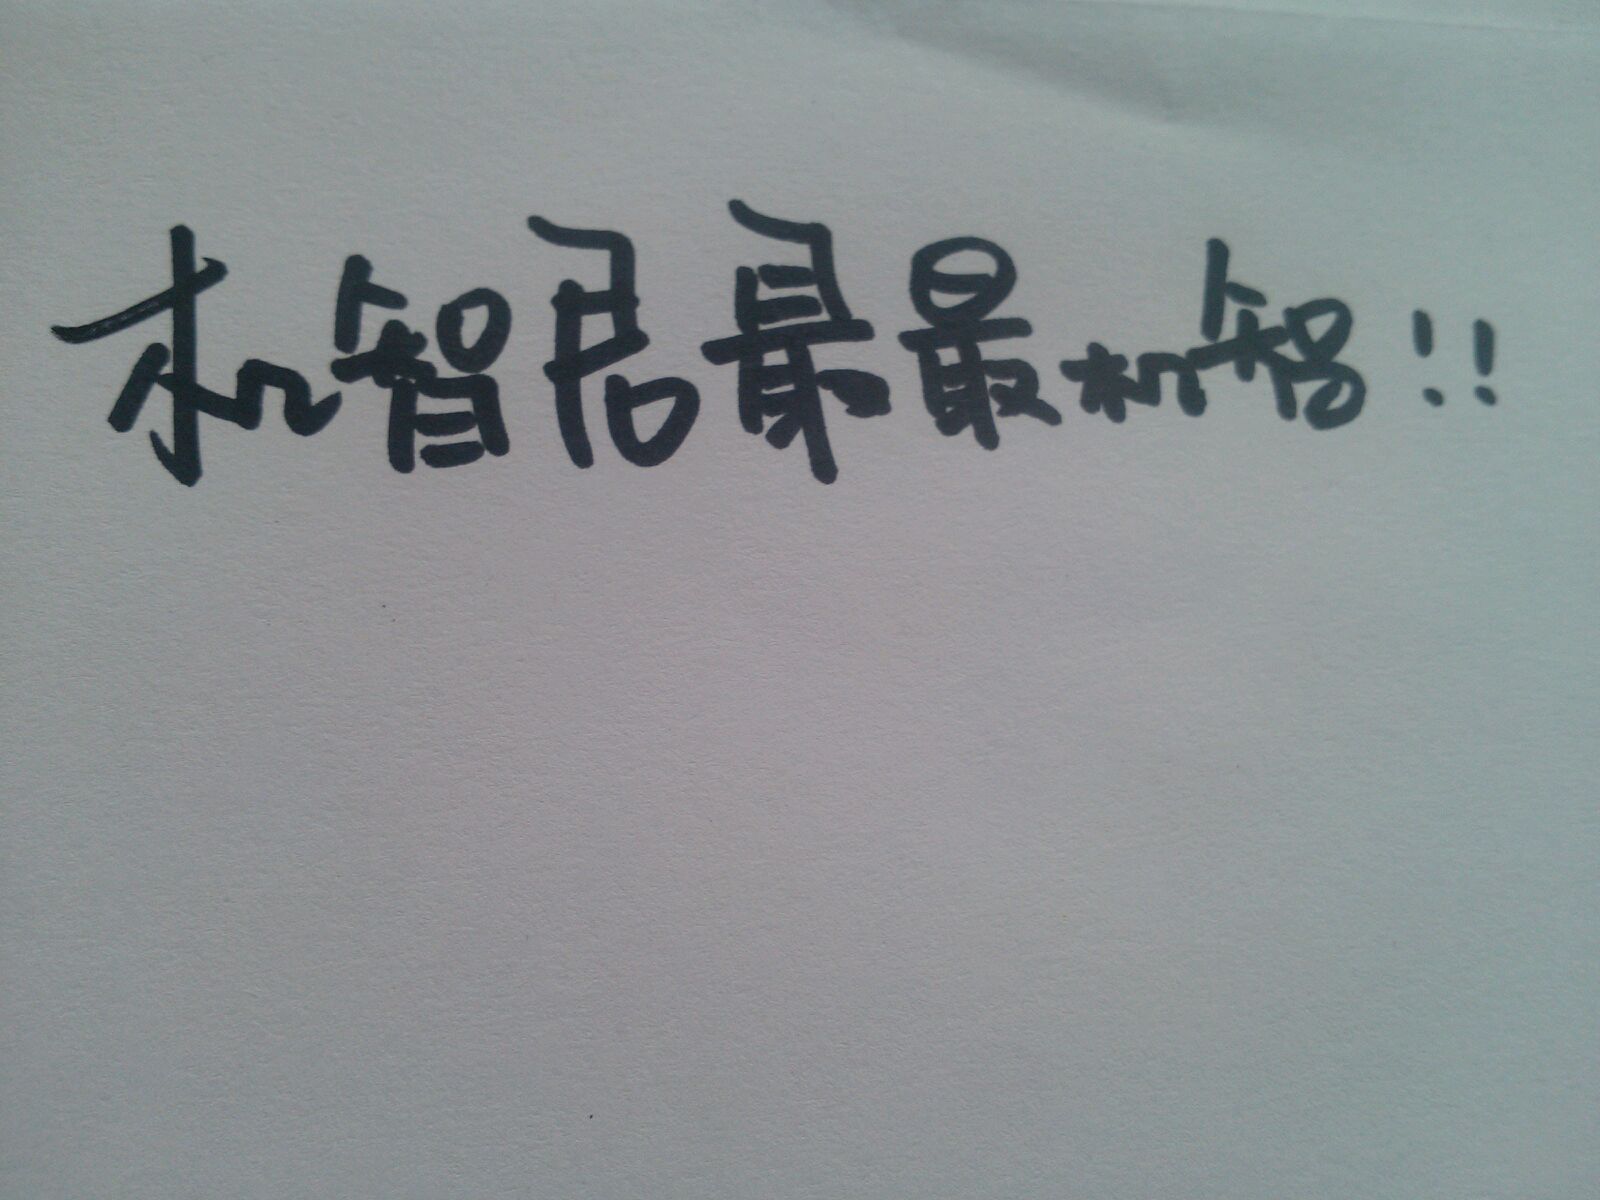 机智君最最机智!!